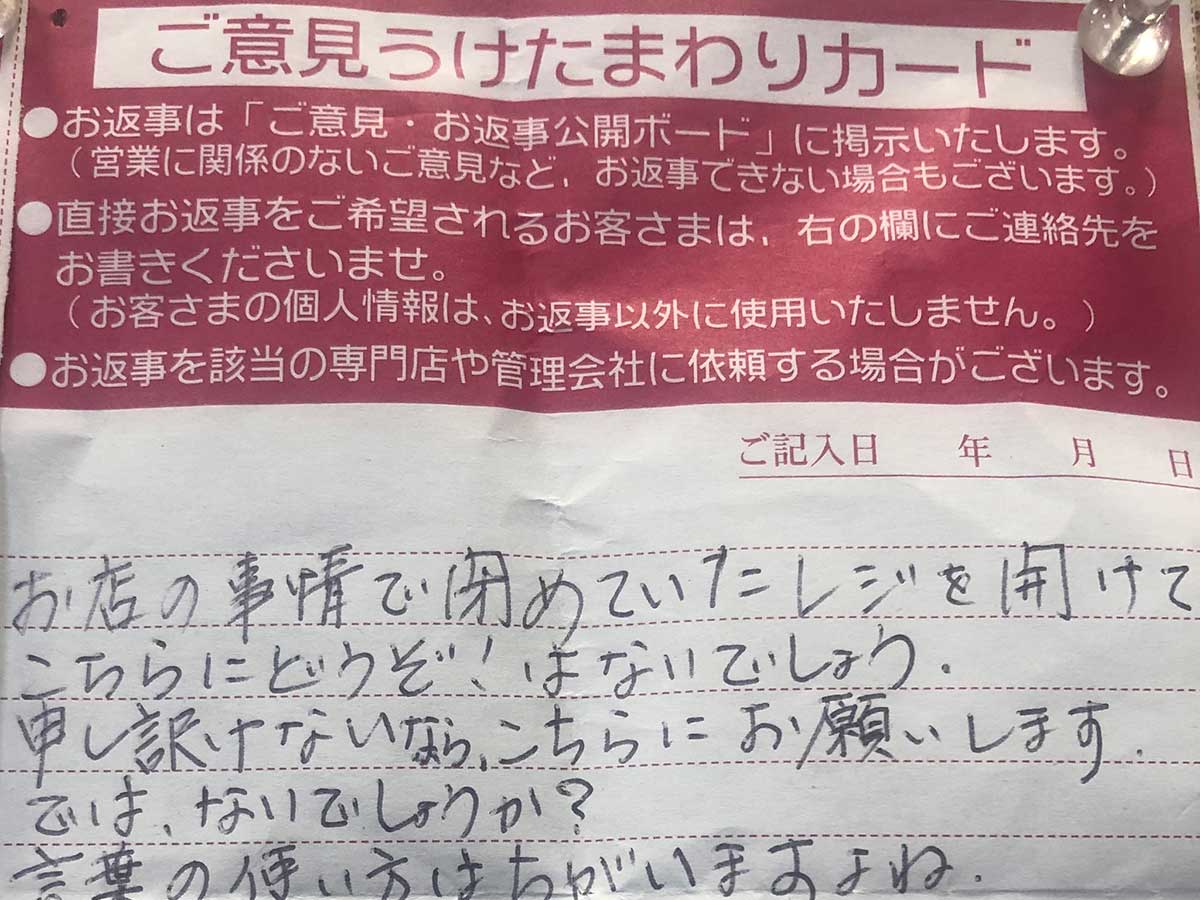 ご意見うけたまわりカード
●お返事は「ご意見・お返事公開ボード」に掲示いたします。
（営業に関係のないご意見など、お返事できない場合もございます。）
●直接お返事をご希望されるお客さまは、右の欄にご連絡先を
お書きくださいませ。
（お客さまの個人情報は、お返事以外に使用いたしません。）
●お返事を該当の専門店や管理会社に依頼する場合がございます。
ご記入日　年　月　日
お店の事情で閉めていたレジを開けて
こちらにどうぞ！はないでしょう.
申し訳けないなら、こちらにお願いします.
では、ないでしょうか？
言葉の使い方はちがいますよね.